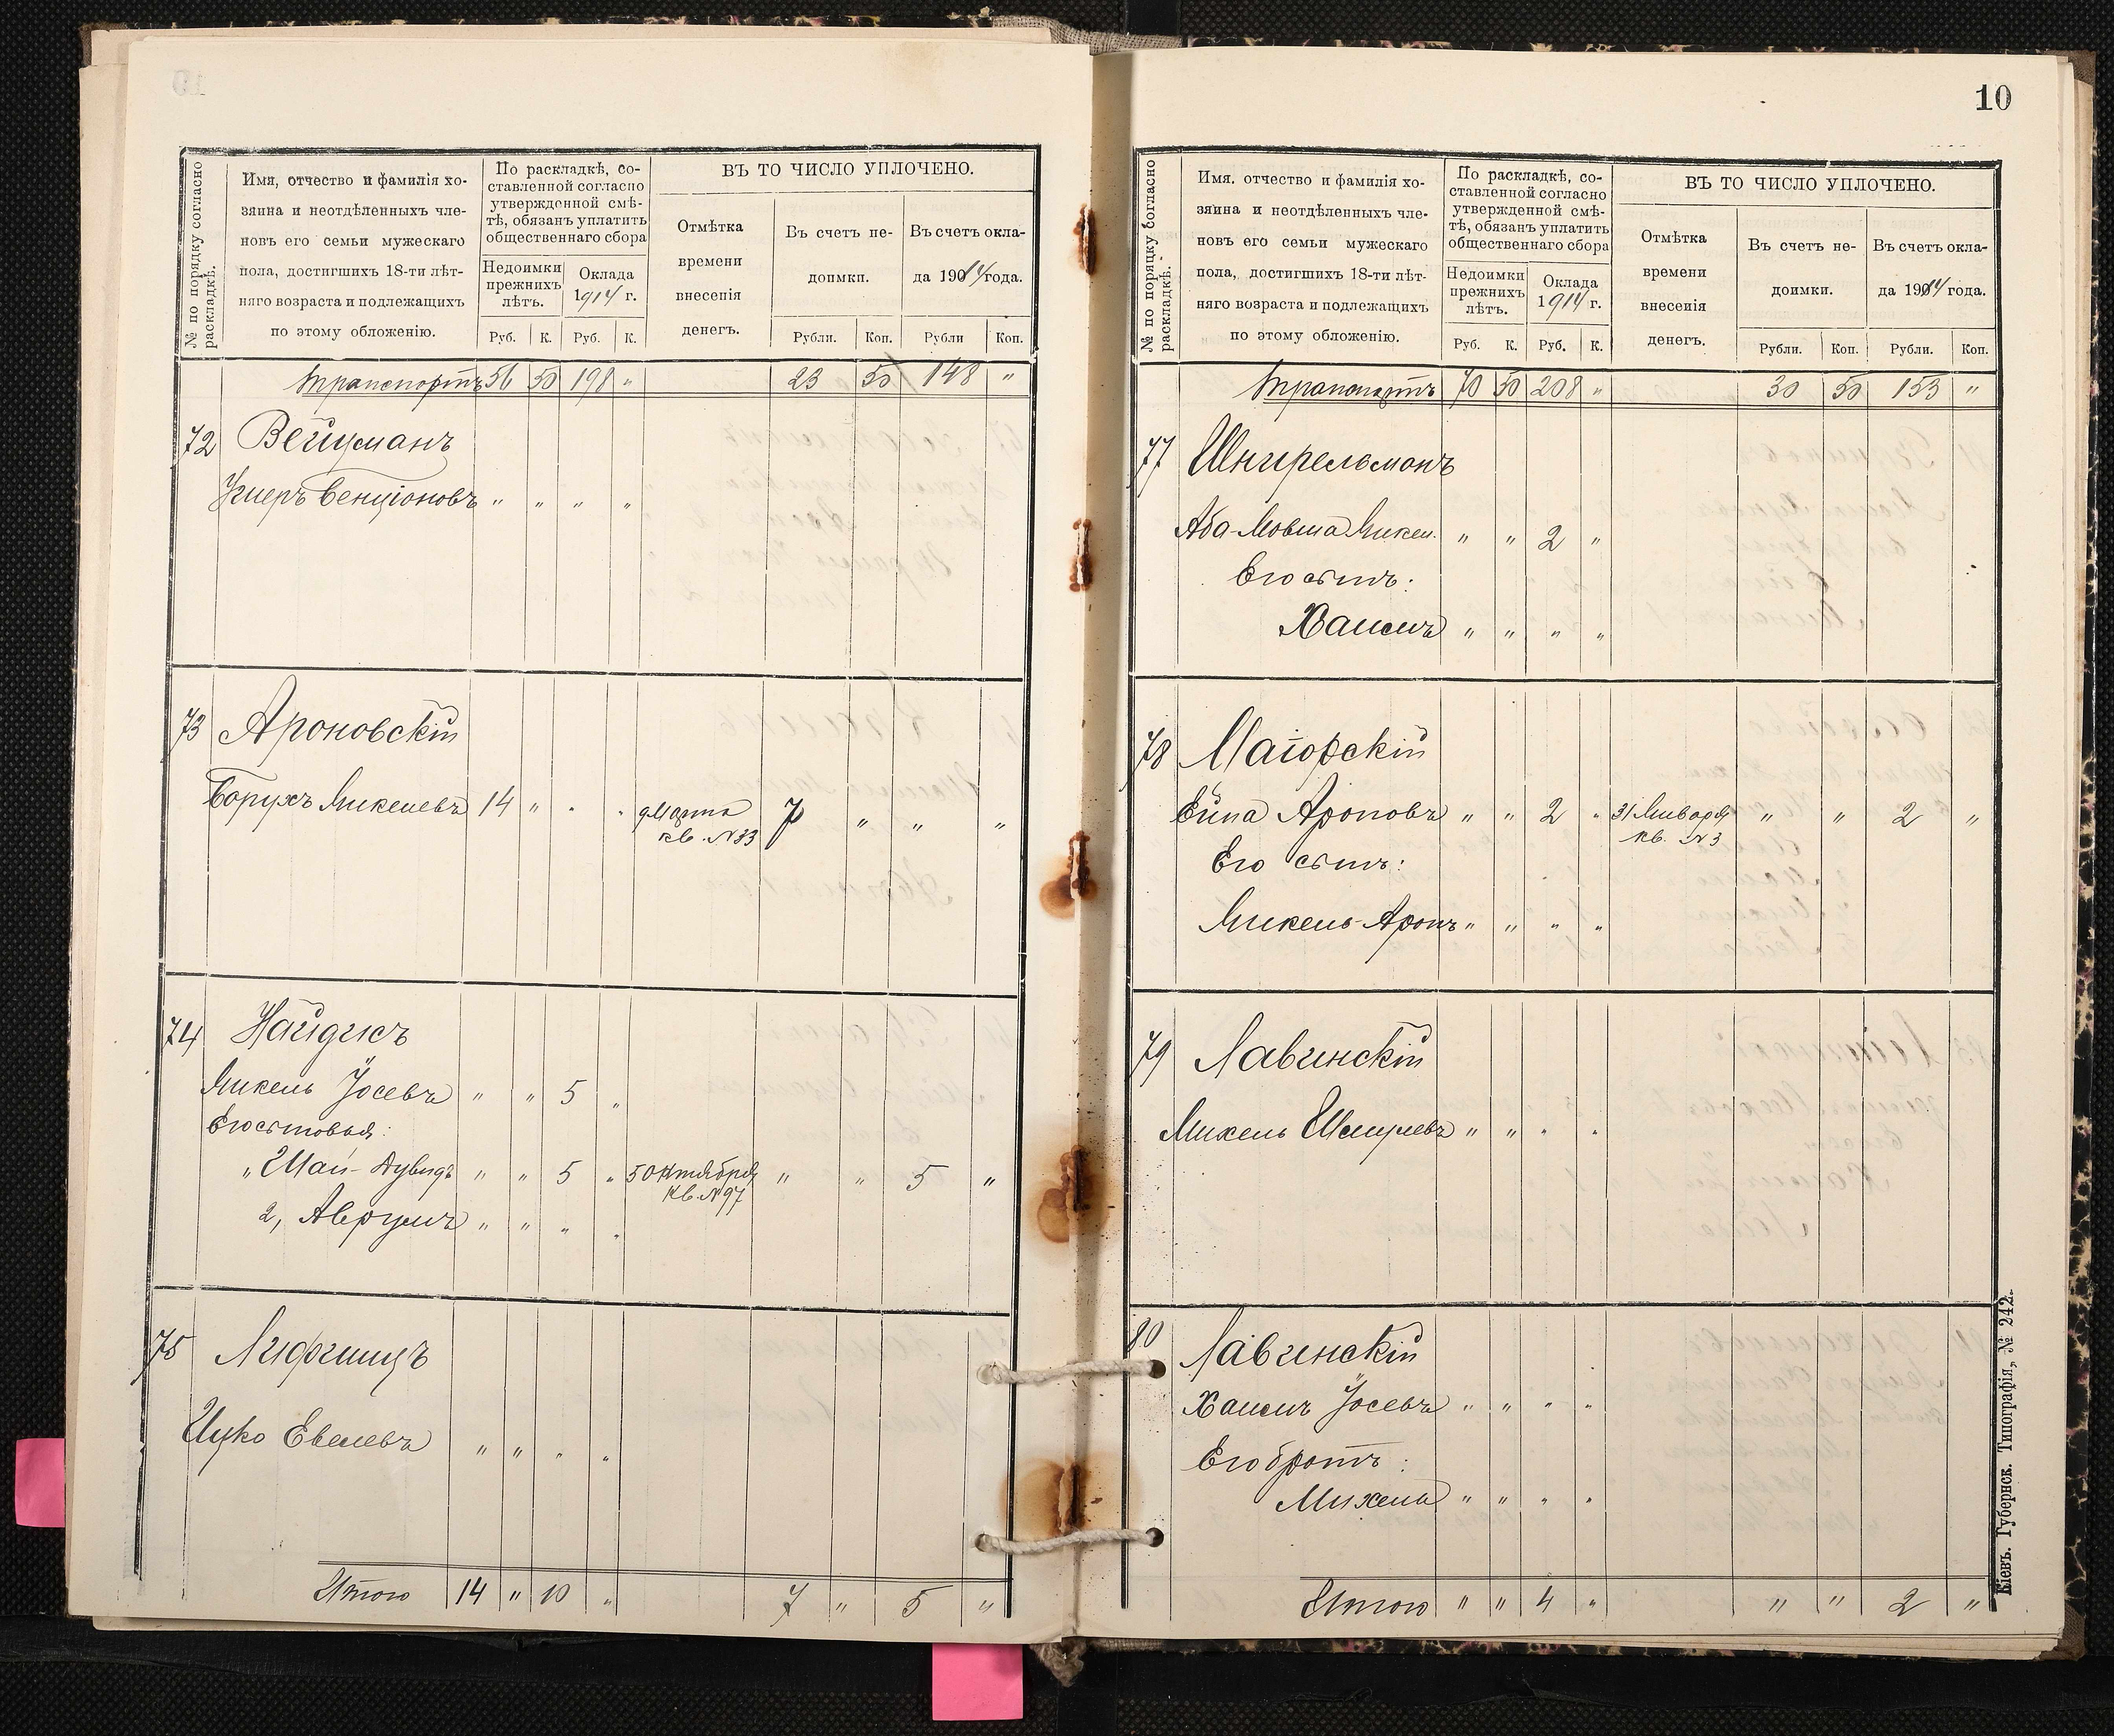 № по порядку согласно
раскладкѣ.
Имя, отчество и фамилія хо-
зяина и неотдѣленныхъ чле-
новъ его семьи мужескаго
пола, достигшихъ 18-ти лѣт-
няго возраста и подлежащихъ
по этому обложенію.
По раскладкѣ, со-
ставленной согласно
утвержденной смѣ-
тѣ, обязанъ уплатить
общественнаго сбора
Недоимки
прежнихъ
лѣтъ.
Оклада
1914 г.
Руб. К. Руб. К.
ВЪ ТО ЧИСЛО УПЛОЧЕНО.
Отмѣтка
времени
внесенія
денегъ.
Въ счетъ не-
доимки.
Въ счетъ окла-
да 1914 года.
Рубли. Коп. Рубли Коп.
Транспортъ 56 50 198 „ 23 50 148 „
72 Вейцманъ
Бенціоновъ „ „ „ „
73 Ароновскій
Борухъ Микелевъ 14 „ „ „ 9 Марта 7 „ „ „
кв. № 33
74 Найдисъ
Микель Іосевъ „ „ 5 „
Его сыновья:
„ Шай-Дувидъ „ „ 5 „ 5 Октября „ „ 5 „
кв. № 97
2, Аврумъ „ „ „ „
75 Лифшицъ
Ицко Евелевъ „ „ „ „
Итого 14 „ 10 „ 7 „ 5 „
10
№ по порядку согласно
раскладкѣ.
Имя. отчество и фамилія хо-
зяина и неотдѣленныхъ чле-
новъ его семьи мужескаго
пола, достигшихъ 18-ти лѣт-
няго возраста и подлежащихъ
по этому обложенію.
По раскладкѣ, со-
ставленной согласно
утвержденной смѣ-
тѣ, обязанъ уплатить
общественнаго сбора
Недоимки
прежнихъ
лѣтъ.
Оклада
1914 г.
Руб. К. Руб. К.
ВЪ ТО ЧИСЛО УПЛОЧЕНО.
Отмѣтка
времени
внесенія
денегъ.
Въ счетъ не-
доимки.
Въ счетъ окла-
да 1914 года.
Рубли. Коп. Рубли. Коп.
Транспортъ 70 50 208 „ 30 50 153 „
77 Шнирельманъ
Аба-Мовша Микел. „ „ 2 „
Его сынъ:
Хаимъ „ „ „ „
78 Магорскій
Ейна Ароновъ „ „ 2 „ 31 Января „ „ 2 „
кв. № 3
Его сынъ:
Микель-Аронъ „ „ „ „
79 Лавинскій
Микель Шмулевъ „ „ „ „
80 Лавинскій
Хаимъ Іосевъ „ „ „ „
Его братъ:
Михель „ „ „ „
Итого „ „ 4 „ „ „ 2 „
Кіевъ. Губернск. Типографія, № 242.